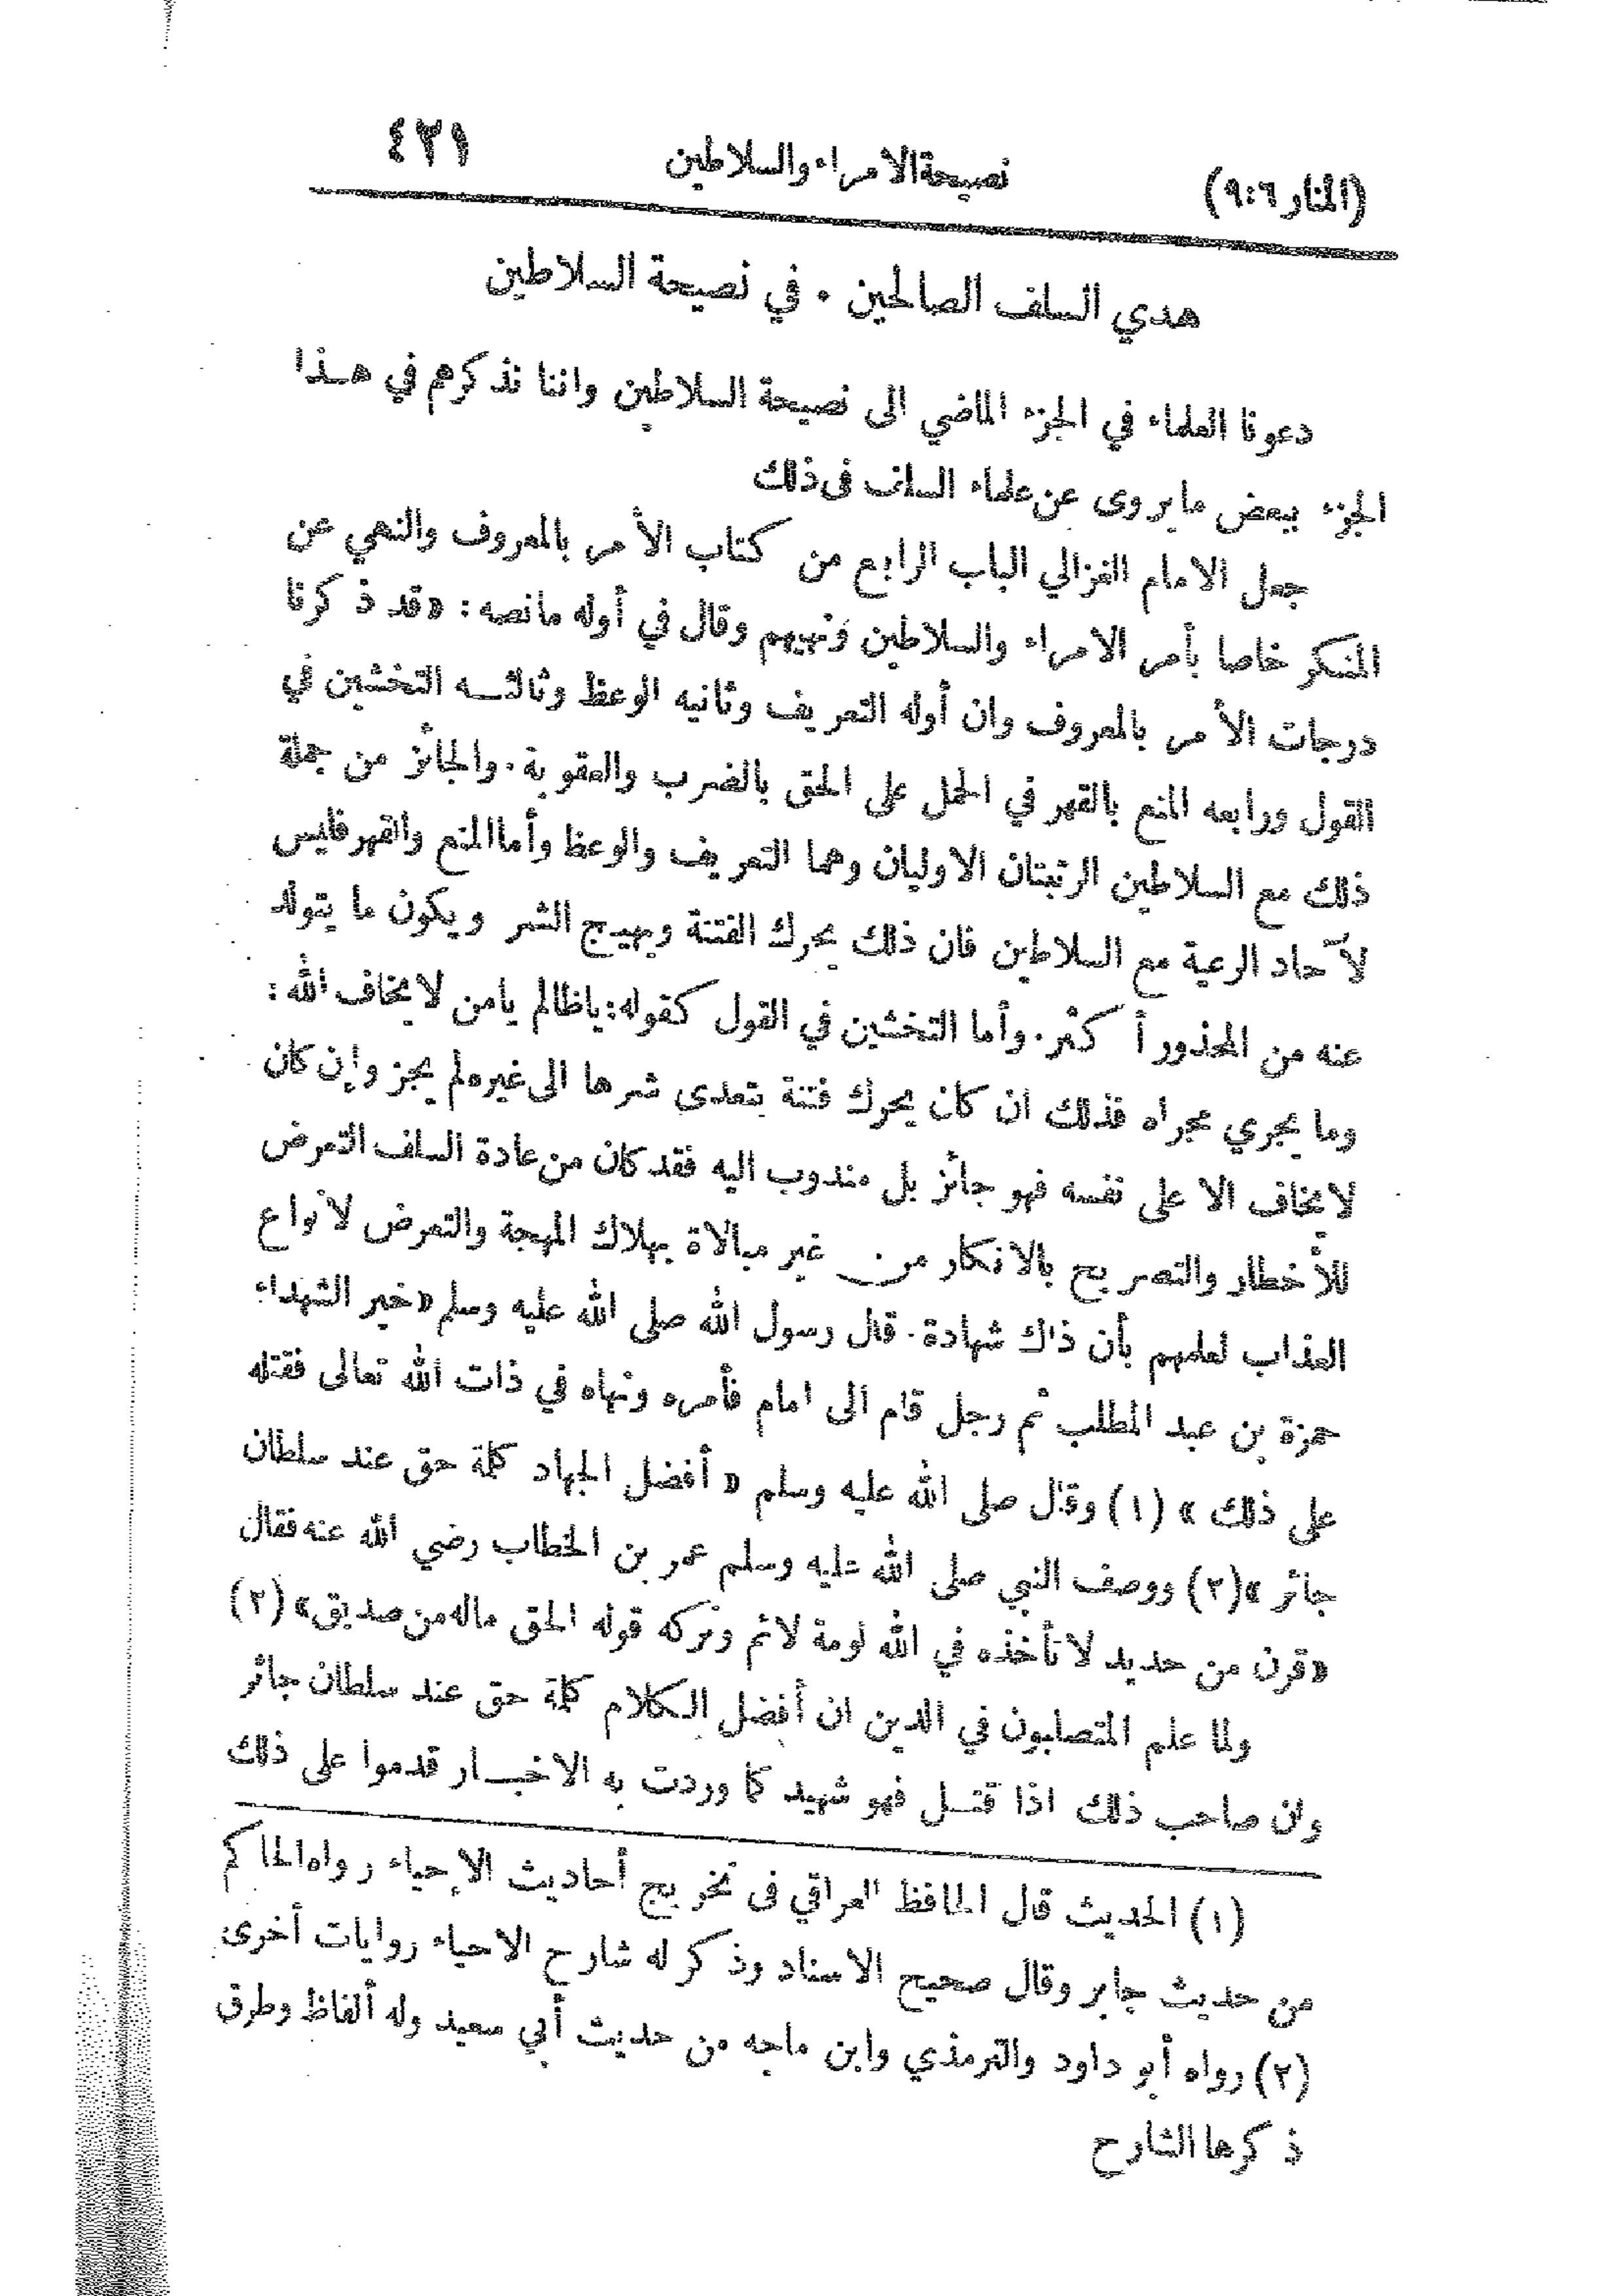 (المنار ٩:٦) نصيحة الامراء والسلاطين ٤٢١
هدي السلف الصالحين . في نصيحة السلاطين
دعونا العلماء في الجزء الماضي الى نصيحة السلاطين واننا نذكرهم في هـذا
الجزء ببعض ما يروى عن علماء السلف في ذلك
جعل الامام الغزالي الباب الرابع من كتاب الأمر بالمعروف والنهي عن
المنكر خاصا بأمر الامراء والسلاطين ونهيهم وقال في أوله مانصه: «قد ذكرنا
درجات الأمر بالمعروف وان أوله التعريف وثانيه الوعظ وثالثـه التخشين في
القول ورابعه المنع بالقهر في الحمل على الحق بالضرب والعقوبة. والجائز من جملة
ذلك مع السلاطين الرتبتان الاوليان وهما التعريف والوعظ وأما المنع والقهر فليس
لآحاد الرعية مع السلاطين فان ذلك يحرك الفتنة ويهيج الشر ويكون ما يتولد
عنه من المحذور أكثر. وأما التخشين في القول كقوله: ياظالم يامن لا يخاف الله :
وما يجري مجراه فذلك ان كان يحرك فتنة يتعدى شرها الى غيره لم يجز وإن كان
لا يخاف الا على نفسه فهو جائز بل مندوب اليه فقد كان من عادة السلف التعرض
للأخطار والتصريح بالانكار من غير مبالاة بهلاك المهجة والتعرض لأنواع
العذاب لعلمهم بأن ذاك شهادة. قال رسول الله صلى الله عليه وسلم «خير الشهداء
حمزة بن عبد المطلب ثم رجل قام الى امام فأمره ونهاه في ذات الله تعالى فقتله
على ذلك » (١) وقال صلى الله عليه وسلم « أفضل الجهاد كلمة حق عند سلطان
جائر »(٢) ووصف النبي صلى الله عليه وسلم عمر بن الخطاب رضي الله عنه فقال
«قرن من حديد لا تأخذه في الله لومة لائم وتركه قوله الحق ماله من صديق» (٢)
ولما علم المتصلبون في الدين ان أفضل الـكلام كلمة حق عند سلطان جائر
وان صاحب ذلك اذا قتـل فهو شهيد كما وردت به الاخبـار قدموا على ذلك
(١) الحديث قال الحافظ العراقي في تخريج أحاديث الإحياء رواه الحاكم
من حديث جابر وقال صحيح الاسناد وذكر له شارح الاحياء روايات أخرى
(٢) رواه أبو داود والترمذي وابن ماجه من حديث أبي سعيد وله ألفاظ وطرق
ذكرها الشارح